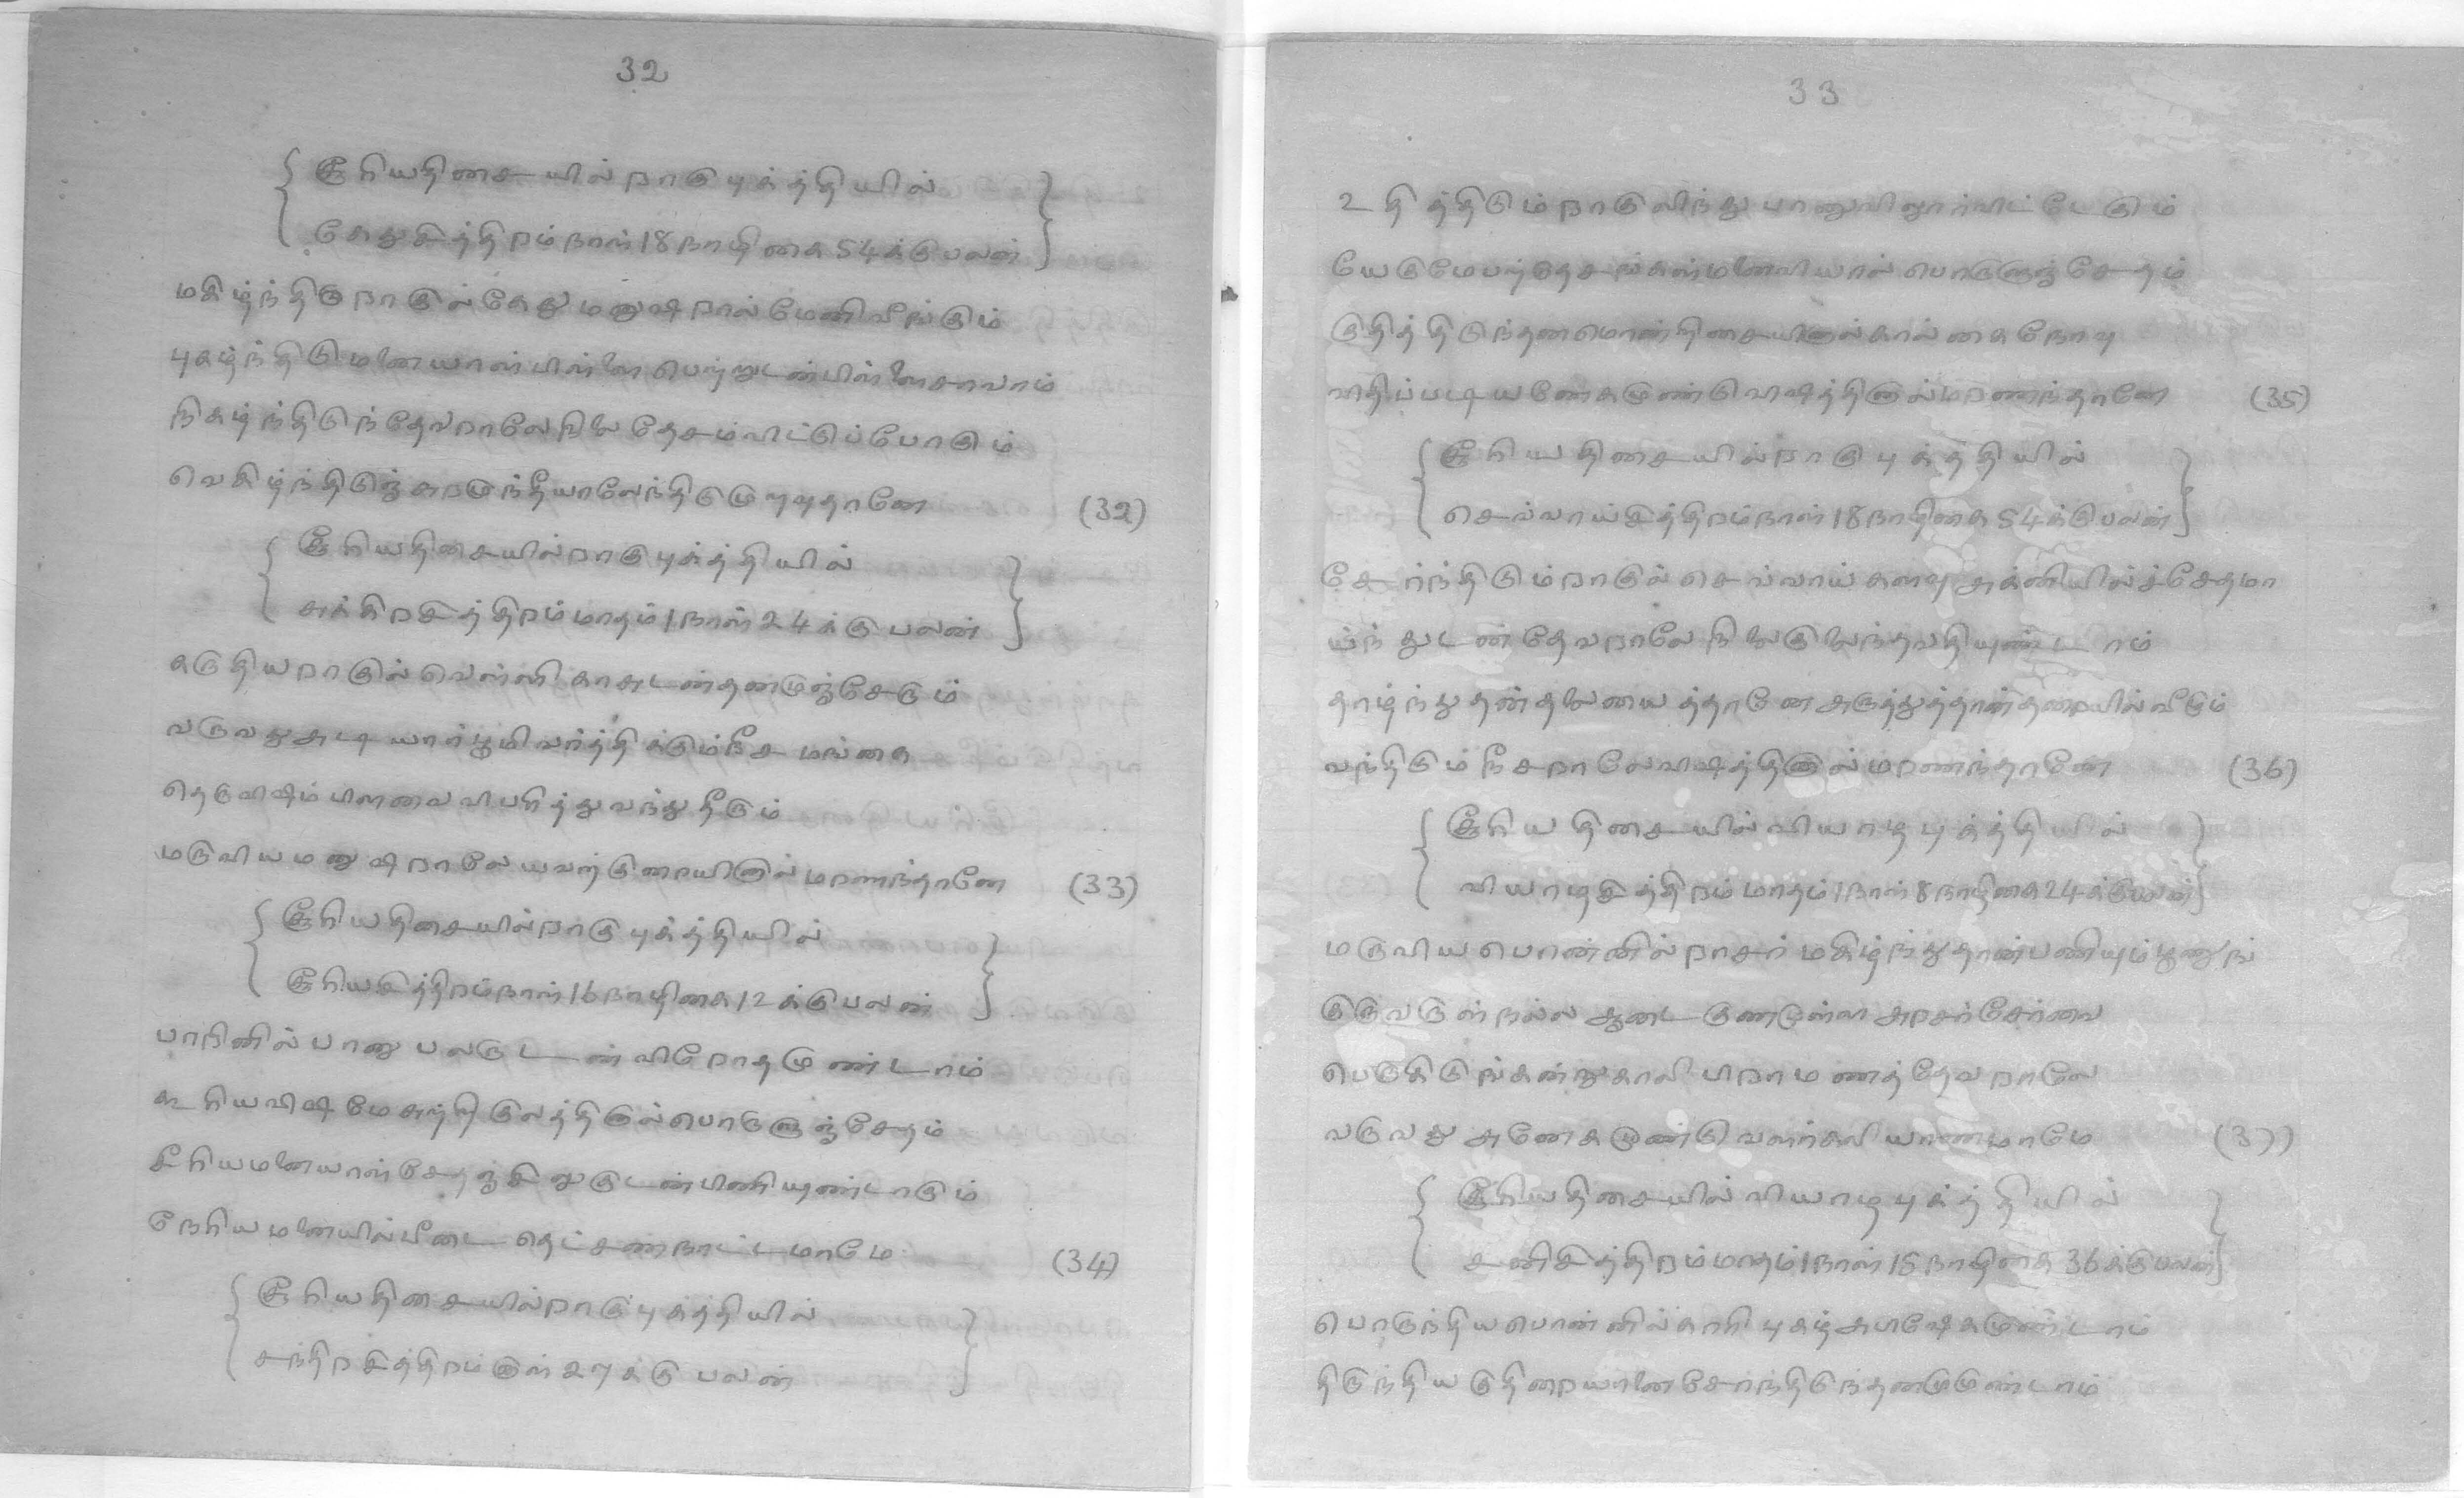 32
சூரியதிசையில் றாகு புக்த்தியில்
கேதுசித்திறம் நாள் 18 நாழிகை 54 க்கு பலன்
மகிழ்ந்திடு றாகுல் கேது மனுஷறால் மேனி வீங்கும்
புகழ்ந்திடு மனையாள் பிள்ளை பெற்றுடன் பிள்ளை சாவாம்
நிகழ்ந்திடுந் தேவறாலே நிலை தேசம் விட்டுப்போகும்
வெகிழ்ந்திடுஞ் சுறமுந் தீயாலேந்திடு முறுதானே (32)
சூரியதிசையில் றாகு புக்த்தியில்
சுக்கிறசித்திறம் மாதம் 1 நாள் 24 க்கு பலன்
கருதிய றாகுல் வெள்ளி காசுடன் தனமுஞ்சேரும்
வருவது சுடியார் பூமி வர்த்திக்கும் நீச மங்கை
தெருவிஷம் பிளவை விபரித்து வந்து தீரும்
மருவிய மனுஷறாலே யவற்குறையினால் மறணந்தானே (33)
சூரியதிசையில் றாகு புக்த்தியில்
சூரியசித்திறம் நாள் 16 நாழிகை 12 க்கு பலன்
பாறினில் பானு பலருடன் விறோதமுண்டாம்
கூரிய விஷமே சுற்றி குலத்தினுல் பொருளுஞ்சேதம்
சீரிய மனையாள் சேதஞ் சிறுகுடன் பிணியுண்டாகும்
நேரிய மனையில் பீடை தெட்சணநாட்டமாமே (34)
சூரியதிசையில் றாகு புக்த்தியில்
சந்திறசித்திறம் னாள் 27 க்கு பலன்
33
உதித்திடும் றாகுவிந்து பானுவினார் விட்டேகும்
யேகுமே பற்றுதசங்கள் மனைவியால் பொருளுஞ்சேதம்
குதித்திடுந் தனமொன்றிசையினால் கால் கை நோவு
விதிப்படி யனேகமுண்டு விஷத்தினால் மறணந்தானே (35)
சூரியதிசையில் றாகு புக்த்தியில்
செவ்வாய்சித்திறம் நாள் 18 நாழிகை 54 க்கு பலன்
சேர்ந்திடும் றாகுல் செவ்வாய் களவு அக்னியில்ச்சேதமா
ய்ந்துடன் தேவறாலே நிலைகுலைந்தவதியுண்டாம்
தாழ்ந்து தன் தலையைத்தானே அருத்துத்தான் தறையில் வீழும்
வந்திடும் நீசறாலே விஷத்தினால் மறணந்தானே (36)
சூரியதிசையில் வியாழ புக்த்தியில்
வியாழசித்திறம் மாதம் 1 நாள் 8 நாழிகை 24 க்கு பலன்
மருவிய பொன்னில் றாசர் மகிழ்ந்து தான் பணியும் பூணுங்
குருவருள் நல்ல ஆடை குணமுள்ள அறசர் சேர்வை
பெருகிடுங் கன்றுகாலி பிறாமணத் தேவறாலே
வருவது அனேகமுண்டு வளர்கலியாணமாமே (37)
சூரியதிசையில் வியாழ புக்த்தியில்
சனிசித்திறம் மாதம் 1 நாள் 15 நாழிகை 36 க்கு பலன்
பொருந்திய பொன்னில் காரி புகழ் அபிஷேகமுண்டாம்
திருந்திய குதிறையானை சேர்ந்திடுந் தனமுமுண்டாம்